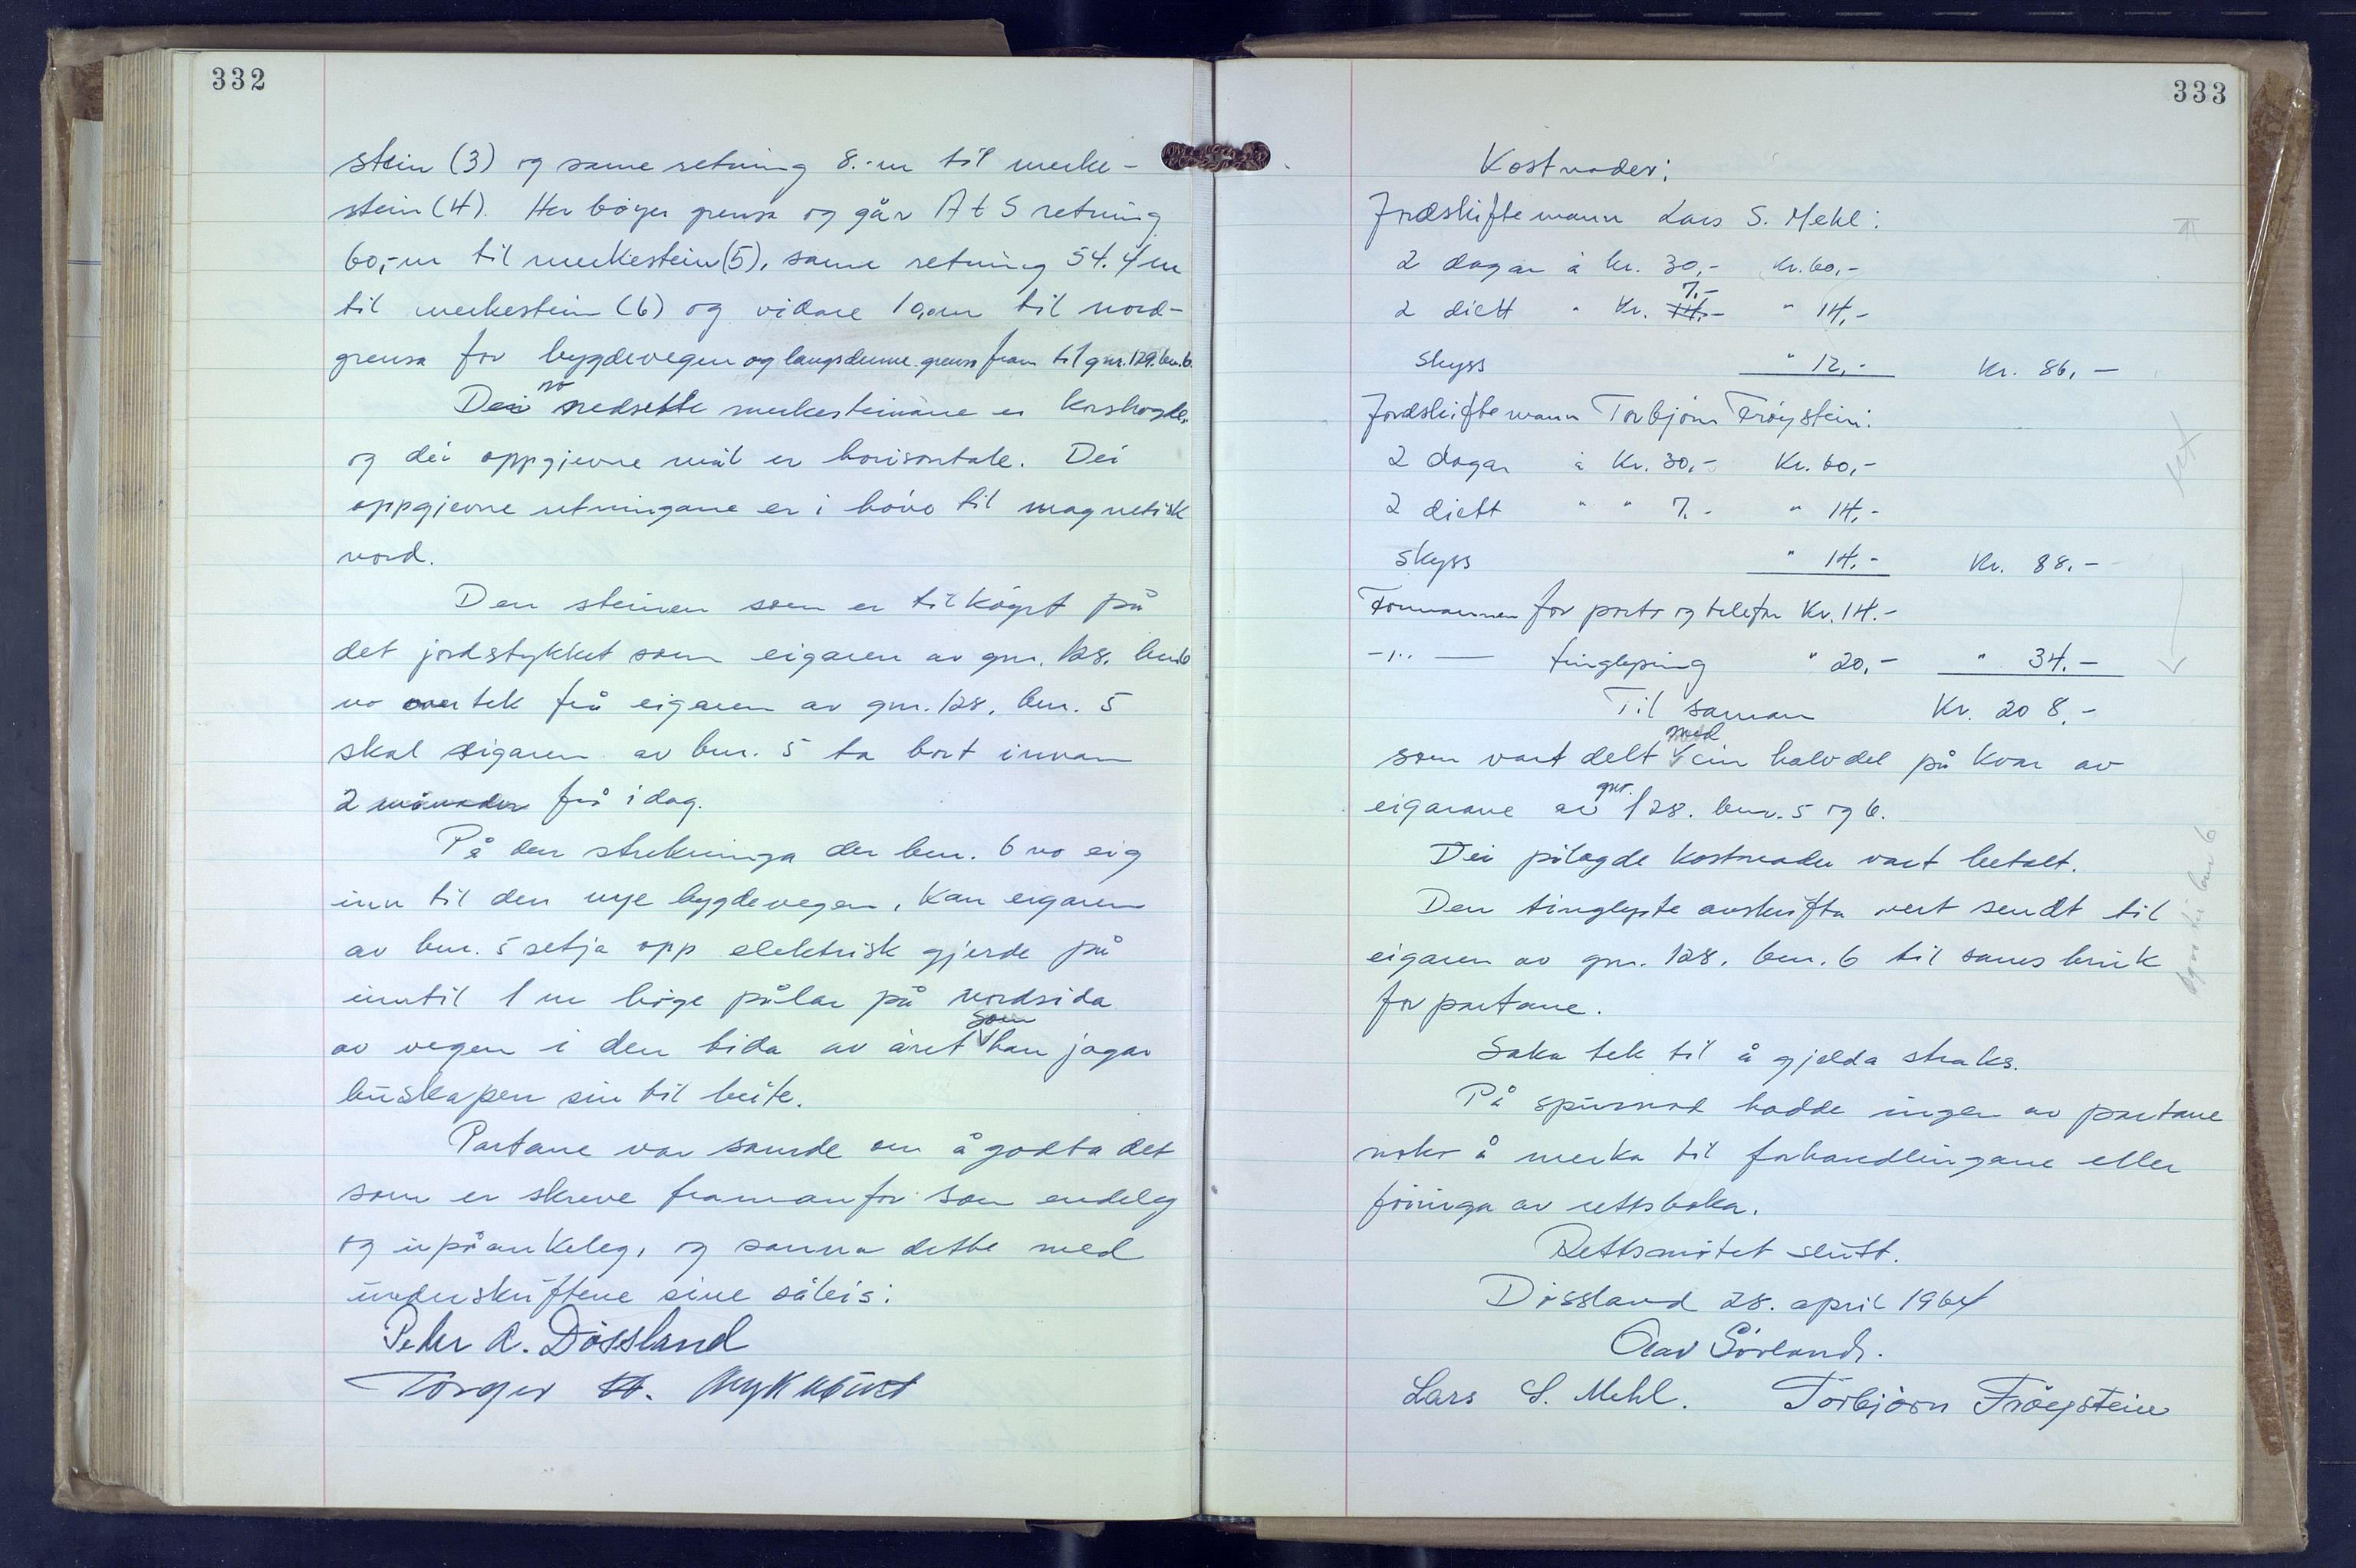 332
stein (3) og same retning 8.-m til merke-
stein (4). Her bøyer grensa og går A t S retning
60,-m til merkestein (5), same retning 54.4 m
til merkestein (6) og vidare 10,0m til nord-
grensa for bygdevegen og langs denne grensa fram til gnr. 129. bnr. 6.
Dei no nedsette merkesteinane er krosshogde,
og dei oppgjevne mål er horisontale. Dei
oppgjevne retningane er i høve til magnetisk
nord.
Den steinen som er tilkøyrt på
det jordstykket som eigaren av gnr. 128. bnr. 6
no overtek frå eigaren av gnr. 128. bnr. 5
skal eigaren av bnr. 5 ta bort innan
2 månader frå i dag.
På den strekninga der bnr. 6 no eig
inn til den nye bygdevegen, kan eigaren
av bnr. 5 setja opp elektrisk gjerde på
inntil 1 m høge pålar på nordsida
av vegen i den tida av året som han jagar
buskapen sin til beite.
Partane var samde om å godta det
som er skreve framanfor som endeleg
og upåankeleg, og sanna dette med
underskriftene sine såleis:
Peter A. Døssland
Torger H. Myklebust
333
Kostnader:
Jordskiftemann Lars S. Mehl:
2 dagar à kr. 30,- Kr. 60,-
2 diett " Kr. 14.- 7.- " 14,-
Skyss " 12,- Kr. 86,-
Jordskiftemann Torbjørn Frøystein:
2 dagar à Kr. 30,- Kr. 60,-
2 diett " " 7.- " 14,-
Skyss " 14.- Kr. 88.-
Formannen for porto og telefon Kr. 14.-
-"- tinglysing " 20,- " 34.-
Til saman Kr. 208,-
som vart delt med ein halvdel på kvar av
eigarane av gnr. 128. bnr. 5 og 6.
Dei pålagde kostnader vart betalt.
Den tinglyste avskrifta vert sendt til
eigaren av gnr. 128. bnr. 6 til sams bruk
for partane.
Saka tek til å gjelda straks.
På spursmål hadde ingen av partane
noko å merka til forhandlingane eller
føringa av rettsboka.
Rettsmøtet slutt.
Døssland 28. april 1964
Olav Sørland.
Lars S. Mehl. Torbjørn Frøystein